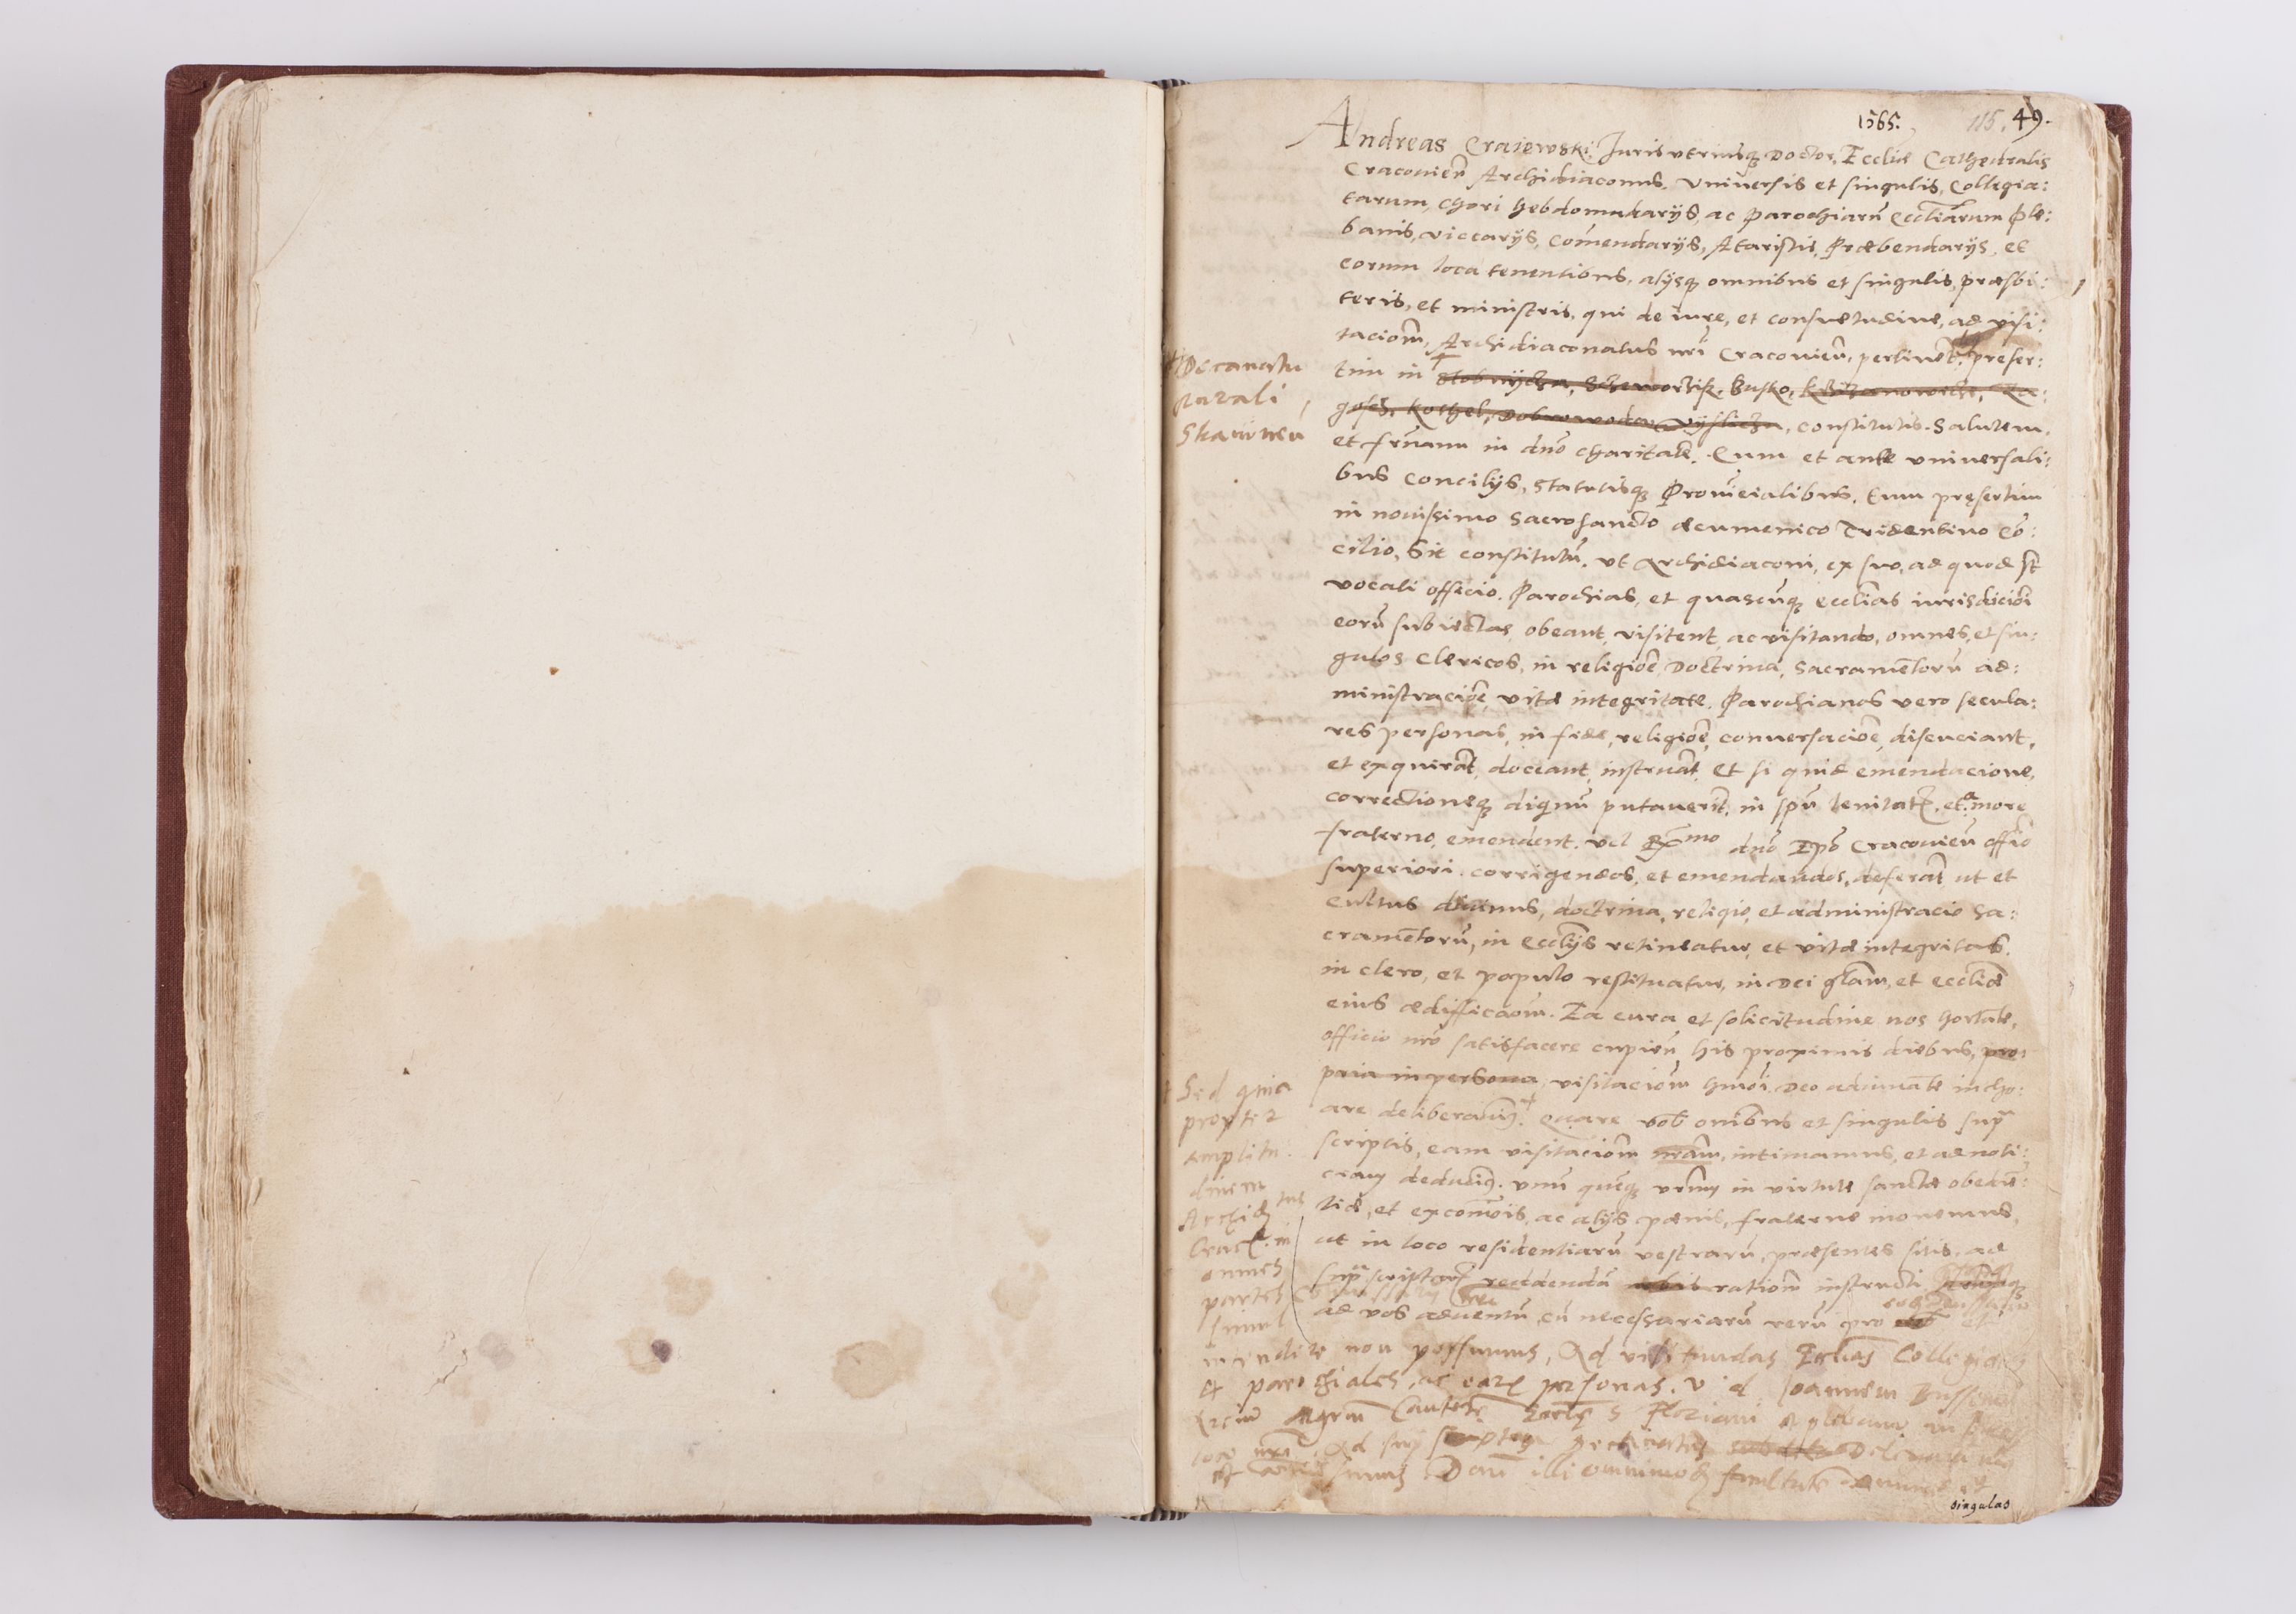 1565. 115. 49.
Andreas Craiewski, Juris utriusq; Doctor, Eccliæ Cathedralis
Cracovień Archidiaconus. Universis et singulis, Collegia:
tarum, Chori hebdomadarijs, ac Parochiarū Eccliarum Ple:
banis, viccarijs, Comendarijs, Altaristis, Præbendarijs, et
eorum loca tenentibus, alijsq; omnibus et singulis, præsbi:
teris, et ministris, qui de iure, et consuetudine, ad visi:
tacionē, Archidiaconatus nr̃i Cracovień, pertinēt, preser:
tim in
Busko,
constitutis. Salutem,
et fr̃nam in dño charitatē. Cum et ante universali:
bus Concilijs, statutisq; Provīcialibus, tum præsertim
in novissimo Sacrosancto œcumenico Tridentino Cō:
cilio, Sit constitutū, ut Archidiaconi, ex suo, ad quod st̄
vocati officio, Parochias, et quascūq; ecclias iurisdicioī
eorū subiectas, obeant, visitent, ac visitando, omnes, et sin:
gulos Clericos, in religiōe, Doctrina, Sacramētorū ad:
ministraciōe, vitæ integritate, Parochianos vero secula:
res personas, in fide, religiōe, conversaciōe, discuciant,
et exquirāt, doceant, instruāt, et si quid emendacione,
correctioneq; dignū putaverīt, in spū lenitatis, et amore
fraterno, emendent, vel Rx̃mo dño Ep̃o Cracovień offīo
superiori, corrigendos, et emendandos, deferāt ut et
cultus divinus, doctrina, religio, et administracio sa:
cramētorū, in ecclijs retineatur, et vitæ integritas,
in clero, et populo restituatur, in Dei glam̃, et eccliæ
eius ædifficaōm. Ea cura et solicitudine nos hortāte,
officio nr̃o satisfacere cupień, his proximis diebus, pro:
pria in persona, visitaciōm hmōi, Deo adiuvāte incho:
are deliberavim9. Quare vob̃ omībus et singulis supra
scriptis, eam visitaciōm nr̃am, intimamus, et ad noti:
ciam deducim9. Unū quēq; vr̃um in virtute sanctæ obediē:
tiæ, et excōmōis, ac alijs pœnis, fraterne monemus,
ut in loco residentiarū vestrarū, præsentes sitis, ad
supra scriptorū reddendā nobis ratiōm instructi
ad vos adventū, cū necessariarū rerū pro
Decanatu
rurali
Skawinen
Sed quia
propter
amplitu
dinem
Archid tus
Crac. in
omnes
partes
simul
intendere non possumus, Ad visitandas Eccliās Collegiatas
et parochiales, ac earū personas, V. d Joannem
S Floriani
illi omnimod facultatē
singulas